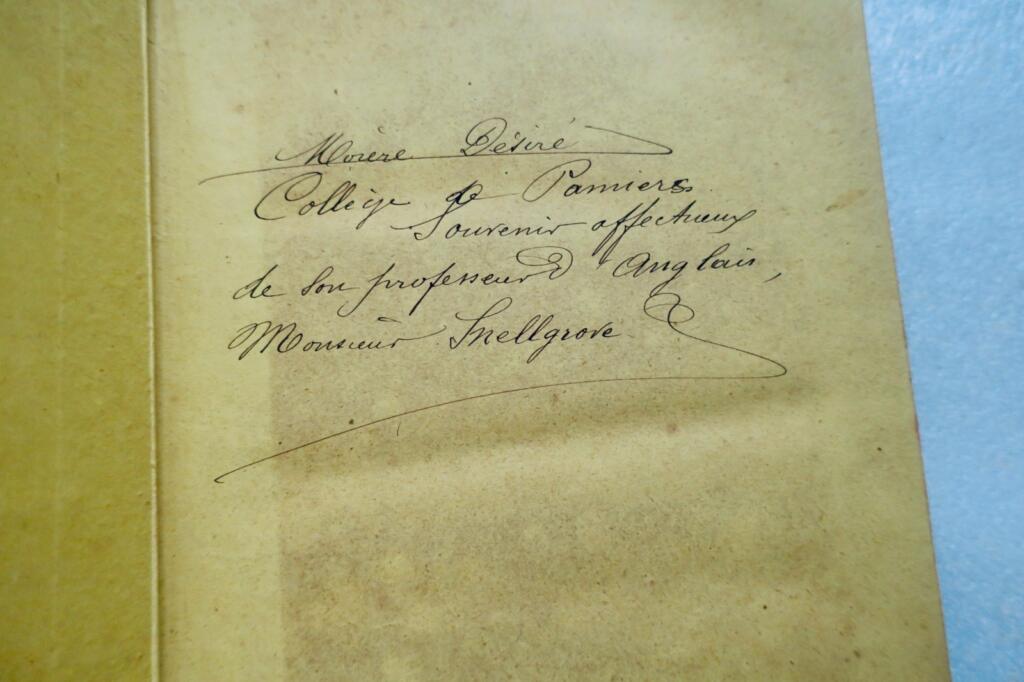 Désiré
Collège de Pamiers
Souvenir affectueux
de son professeur D' Anglais,
Monsieur Snellgrove